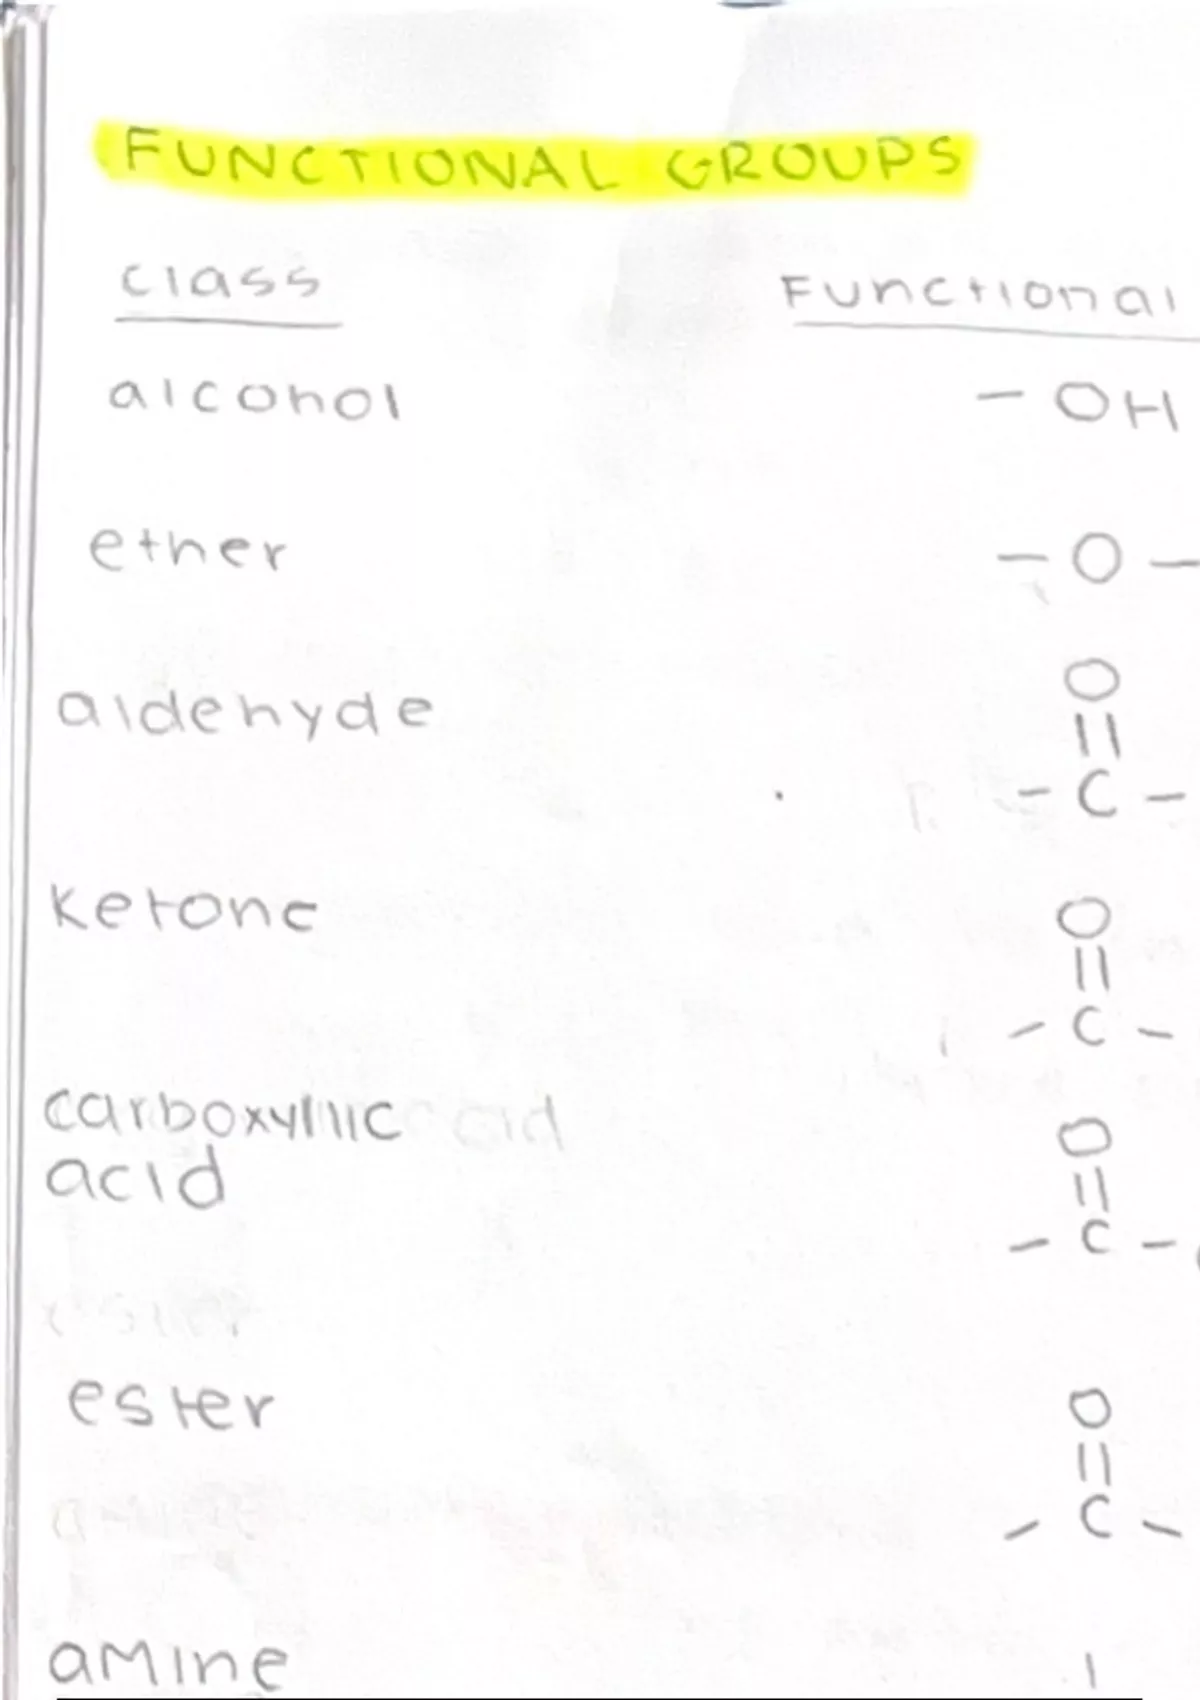 FUNCTIONAL GROUPS
class Functional
alcohol - OH
ether - O -
aldehyde
O
||
- C -
ketone
O
||
- C -
carboxylic
acid
O
||
- C -
ester
O
||
- C -
amine